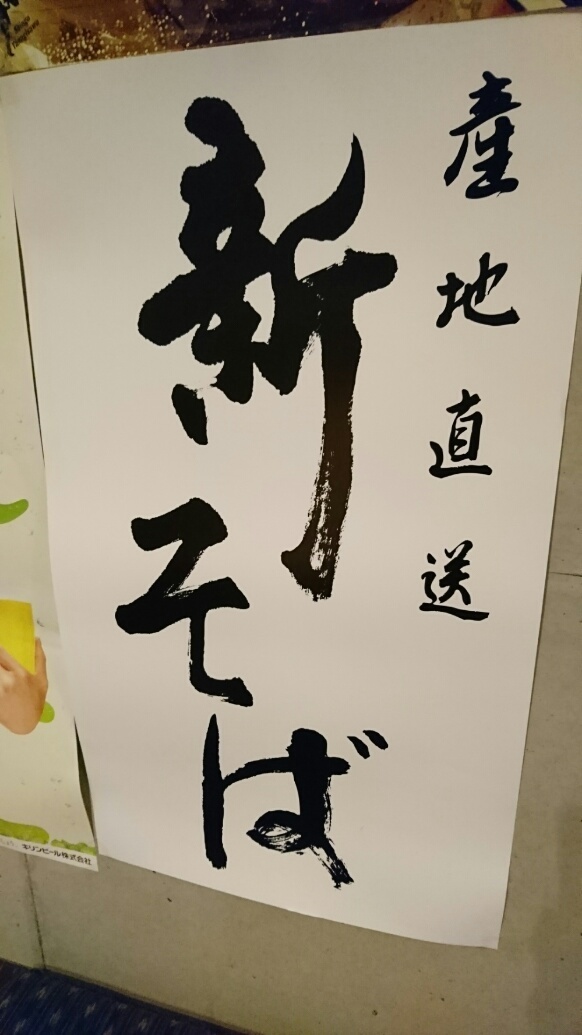 産地直送
新そば
キリンビール株式会社